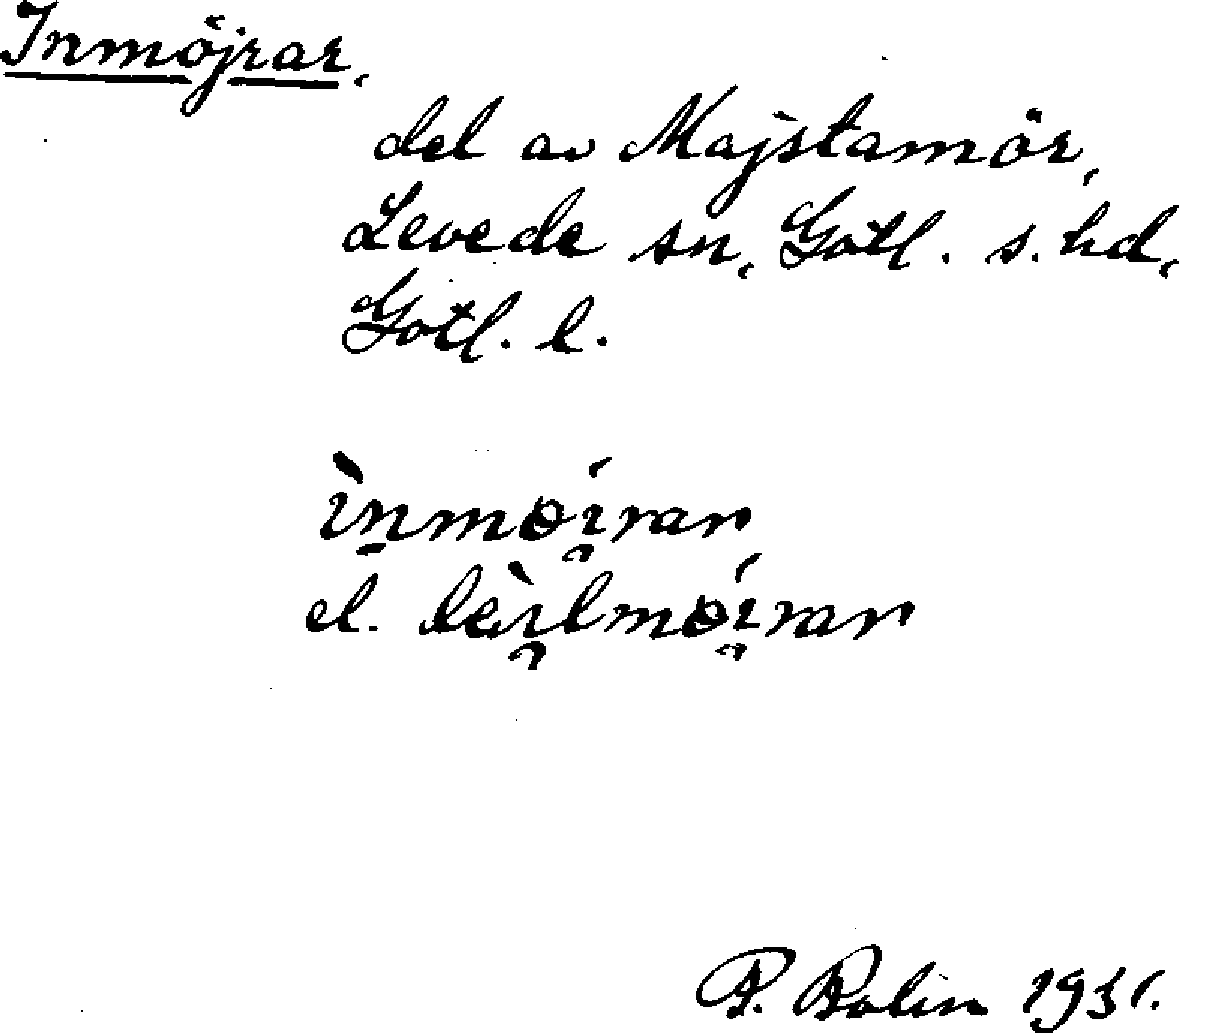 Inmöjrar,
del av Majstamör,
Levede sn, Gotl. s. hd,
Gotl. l.
ìnmɵi̯rar
el. lei̯lmɵi̯rar
P. Bolin 1931.